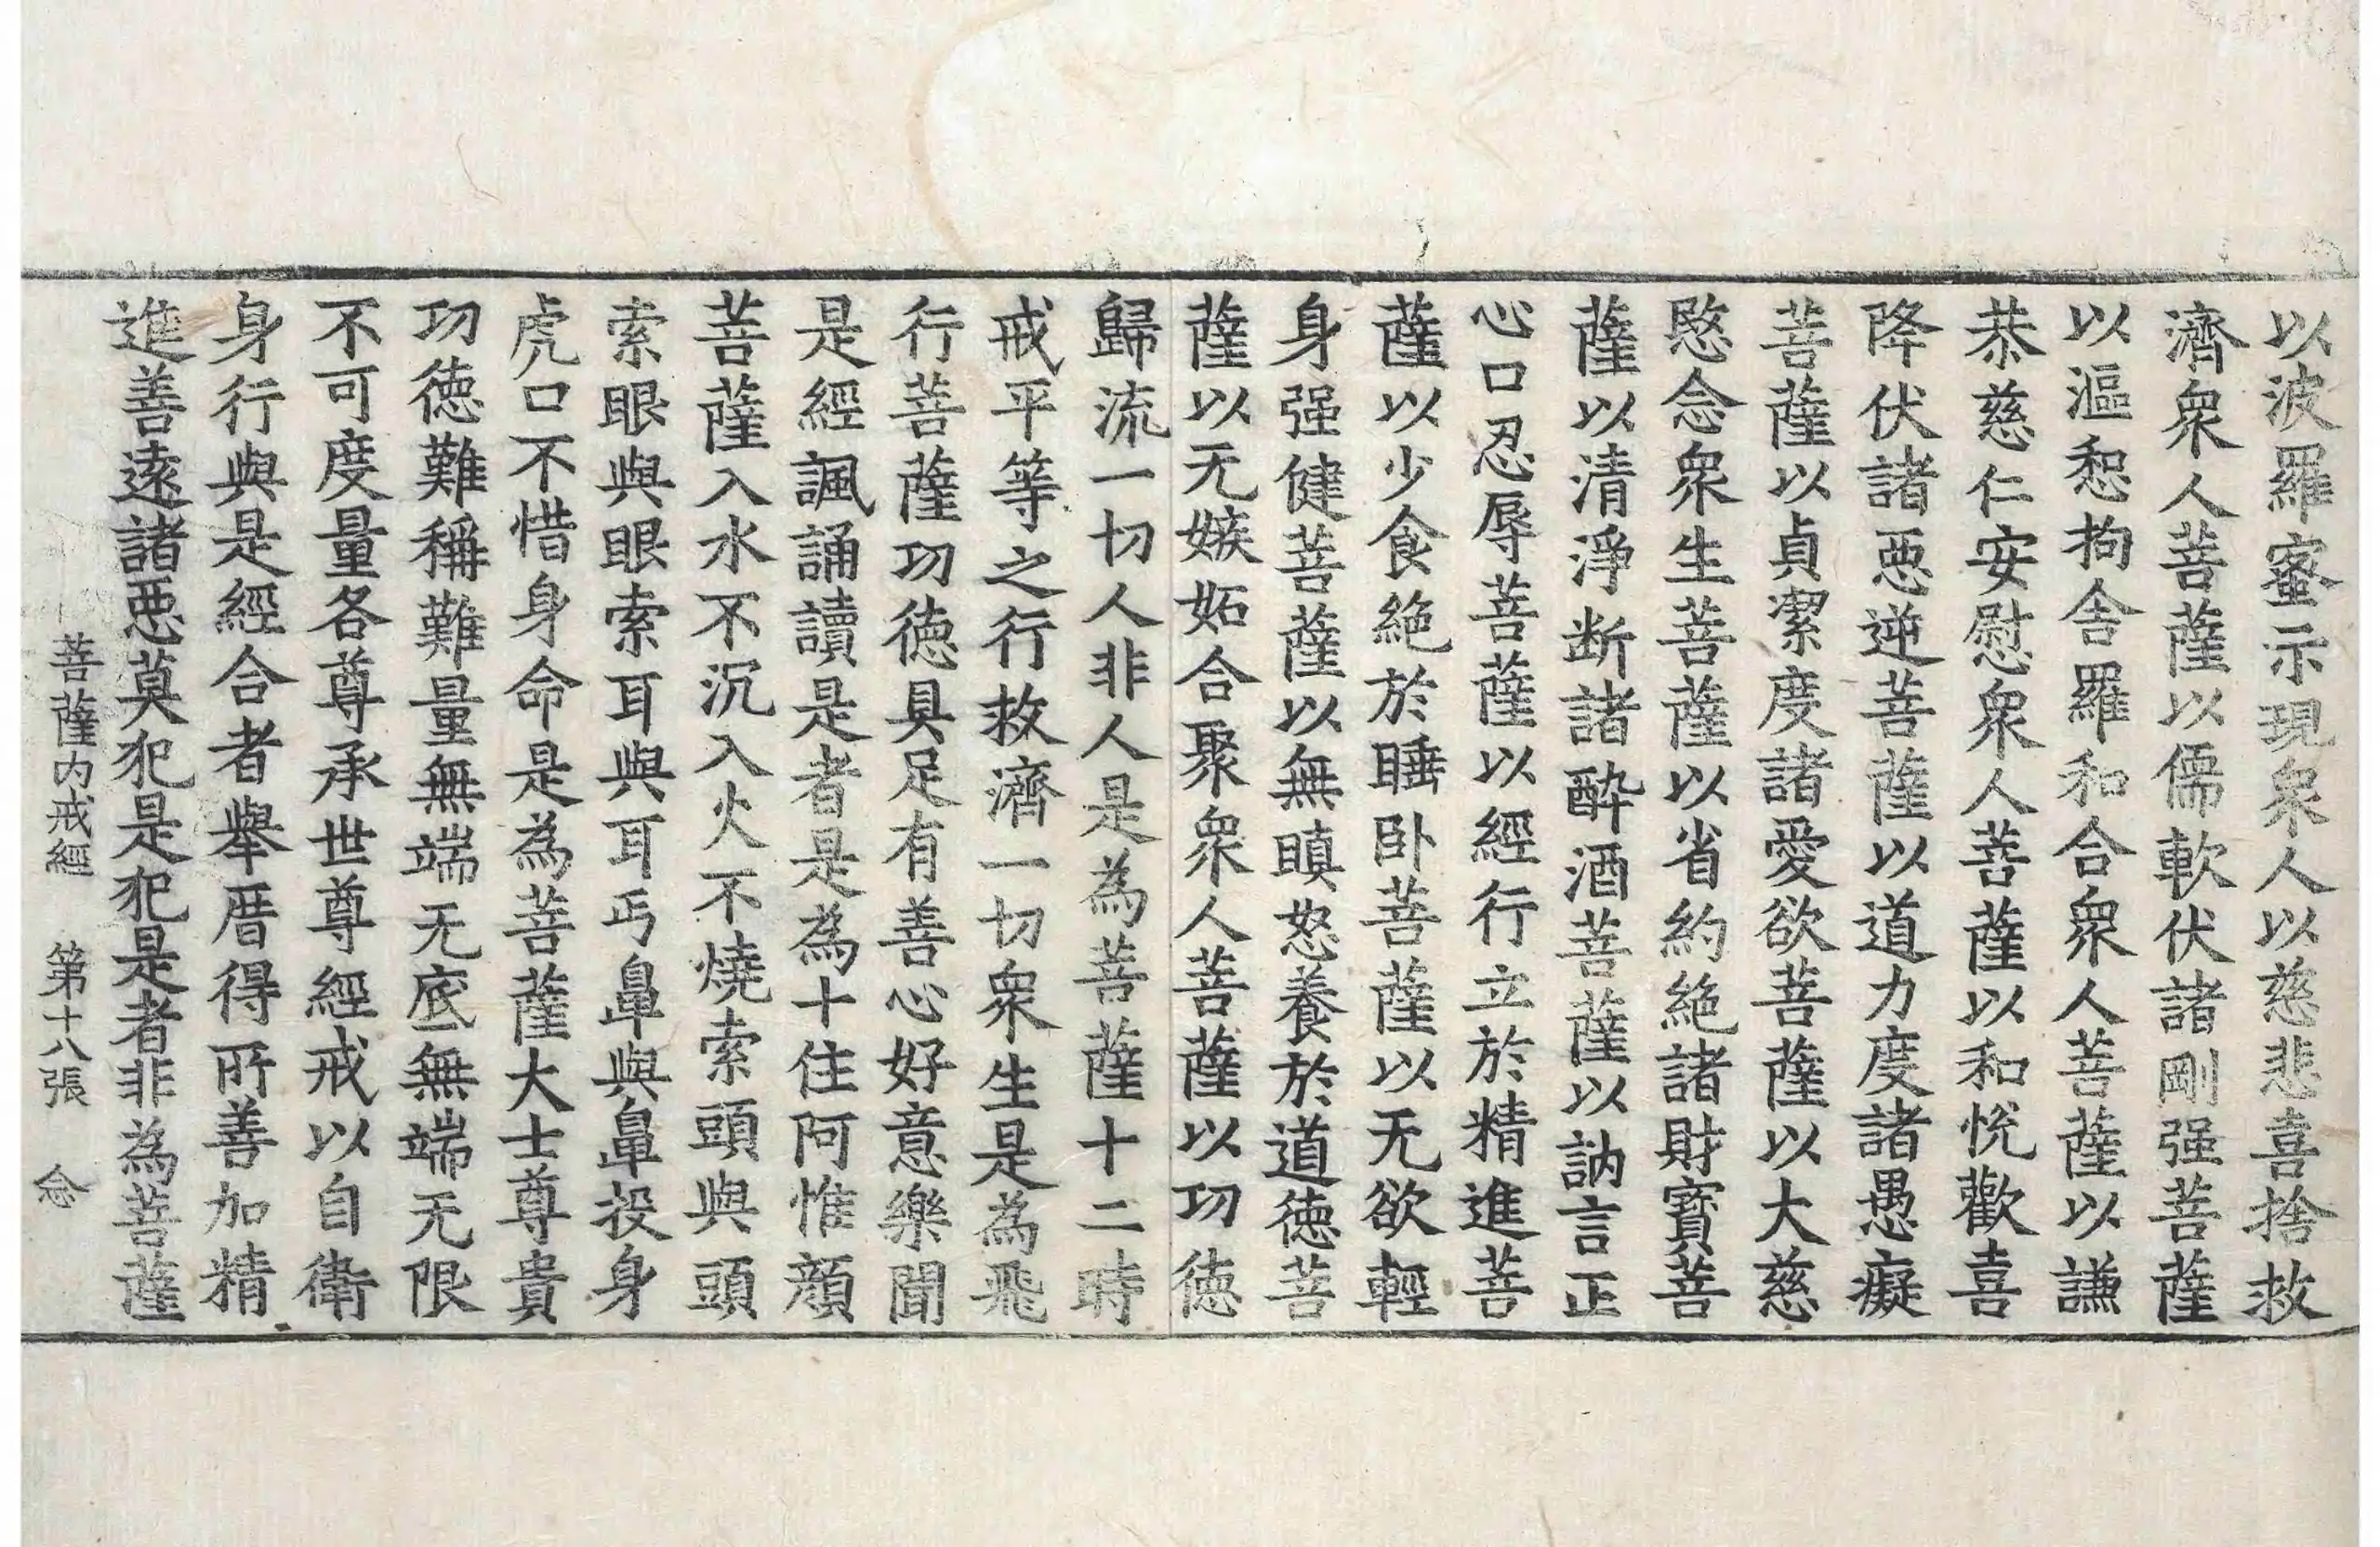 以波羅蜜示現衆人以慈悲喜捨救
濟衆人菩薩以儒軟伏諸剛强菩薩
以漚惒拘舍羅和合衆人菩薩以謙
恭慈仁安慰衆人菩薩以和悅歡喜
降伏諸惡逆菩薩以道力度諸愚癡
菩薩以貞潔度諸愛欲菩薩以大慈
愍念衆生菩薩以省約絶諸財寳菩
薩以清淨断諸酔酒菩薩以訥言正
心口忍辱菩薩以經行立於精進菩
薩以少食絶於睡卧菩薩以无欲輕
身强健菩薩以無瞋怒養於道徳菩
薩以无嫉妬合聚衆人菩薩以功徳
歸流一切人非人是為菩薩十二時
戒平等之行救濟一切衆生是為飛
行菩薩功徳具足有善心好意樂聞
是經諷誦讀是者是為十住阿惟顔
菩薩入水不沉入火不燒索頭與頭
索眼與眼索耳與耳丐鼻與鼻投身
虎口不惜身命是為菩薩大士尊貴
功徳難稱難量無端无底無端无限
不可度量各尊承世尊經戒以自衛
身行與是經合者舉厝得所善加精
進善遠諸惡莫犯是犯是者非為菩薩
菩薩内戒經 第十八張 念